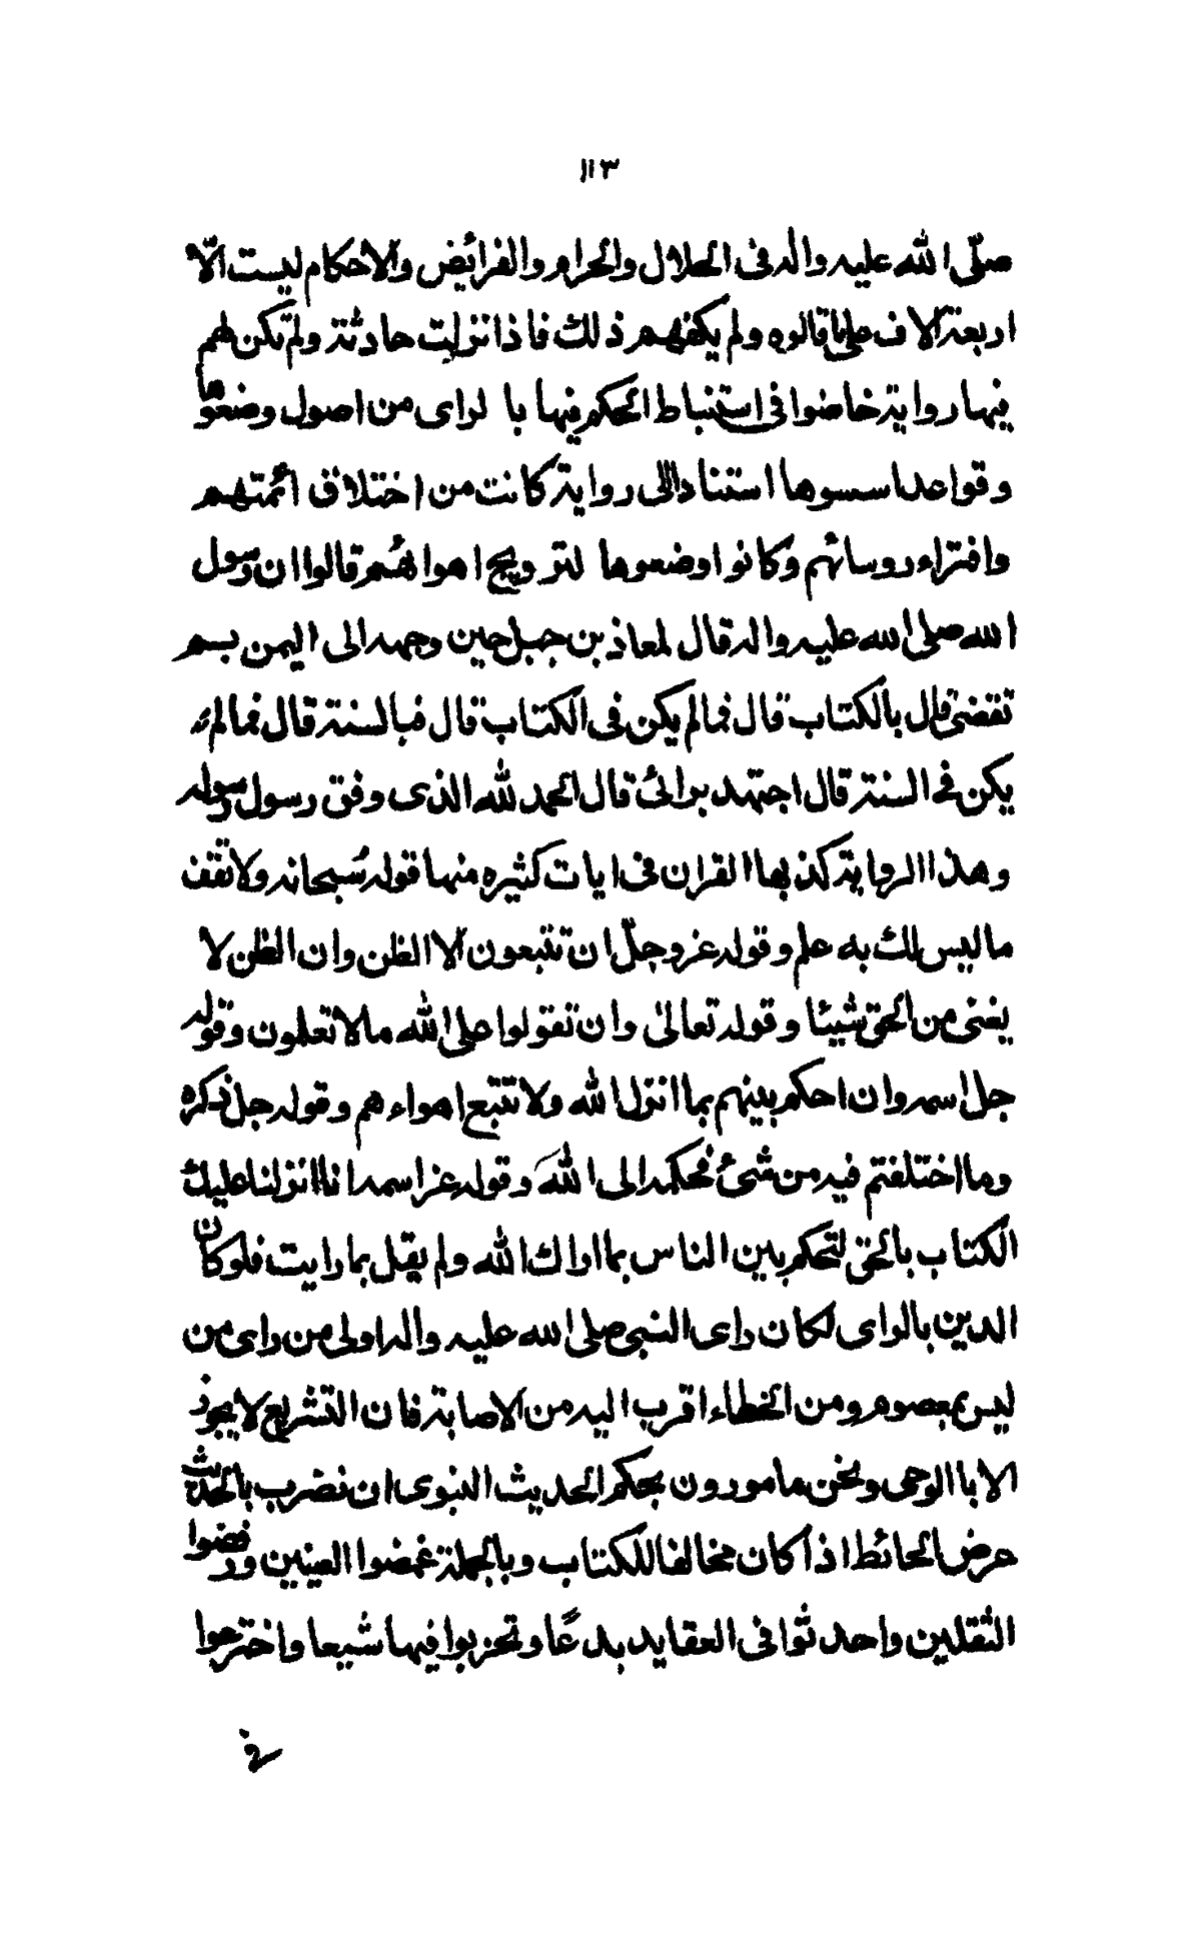 ١١٣
صلّى الله عليه واله فى الحلال والحرام والفرائض والاحكام ليست الّا
اربعة آلاف على ما قالوه ولم يكفهم ذلك فاذا نزلت حادثة ولم تكن لهم
فيها رواية خاضوا فى استنباط الحكم فيها با لراى من اصول وضعوها
وقواعد اسسوها استنادا الى رواية كانت من اختلاق ائمتهم
وافتراء روسائهم وكانوا وضعوها لترويج اهوائهم قالوا ان رسول
الله صلى الله عليه واله قال لمعاذ بن جبل حين وجهه الى اليمن بم
تقضى قال بالكتاب قال فمالم يكن فى الكتاب قال فبالسنة قال فمالم
يكن فى السنة قال اجتهد برائى قال الحمد لله الذى وفق رسول رسوله
وهذا الرواية كذبها القران فى ايات كثيره منها قوله سُبحانه ولا تقف
ماليس لك به علم وقوله عزوجلّ ان تتبعون الا الظن وان الظن لا
يغنى من الحق شيئا وقوله تعالى وان تقولوا على الله مالا تعلمون وقوله
جل اسمه وان احكم بينهم بما انزل الله ولا تتبع اهواءهم وقوله جل ذكره
وما اختلفتم فيه من شىء فحكمه الى الله وقوله عز اسمه انا انزلنا عليك
الكتاب بالحق لتحكم بين الناس بما اراك الله ولم يقل بما رايت فلوكان
الدين بالراى لكان راى النبى صلى الله عليه واله اولى من راى من
ليس بمعصوم ومن الخطاء اقرب اليه من الاصابة فان التشريع لا يجوز
الا با الوحى ونحن مامورون بحكم الحديث النبوى ان نضرب بالحديث
عرض الحائط اذا كان مخالفا للكتاب وبالجملة غمضوا العينين ورفضوا
الثقلين واحدثوا فى العقايد بدعًا وتحزبوا فيها شيعا واخترعوا
فى